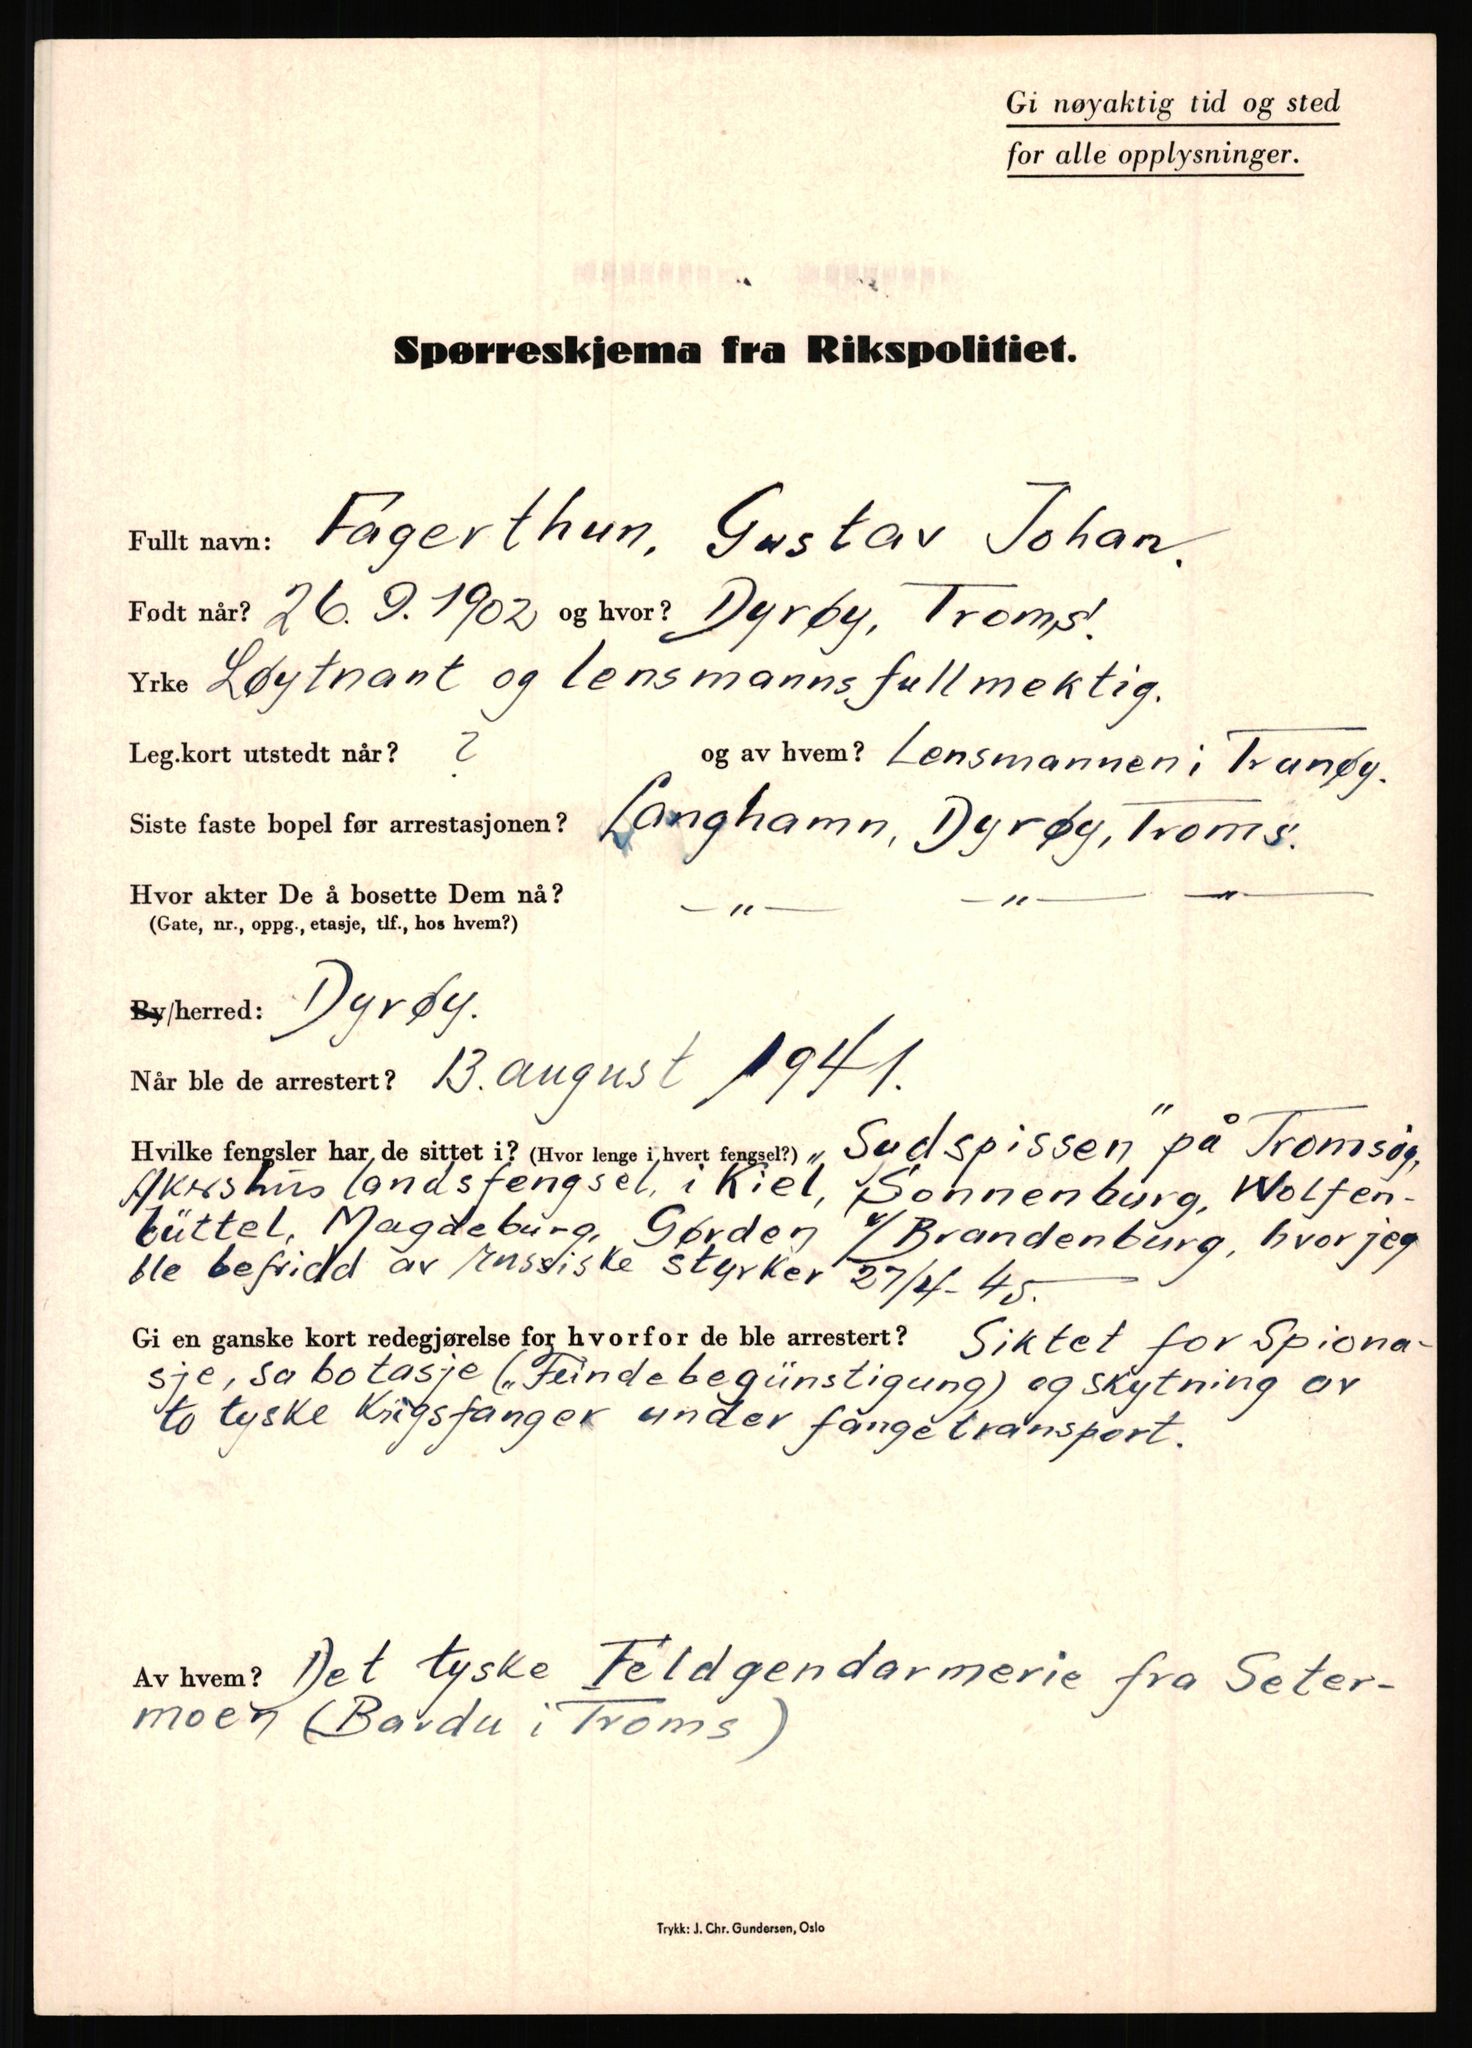 Gi nøyaktig tid og sted
for alle opplysninger.
Spørreskjema fra Rikspolitiet.
Fullt navn: Fagerthun, Gustav Johan.
Født når? 26.9.1902 og hvor? Dyrøy, Troms.
Yrke Løytnant og lensmannsfullmektig.
Leg.kort utstedt når? ? og av hvem? Lensmannen i Tranøy.
Siste faste bopel før arrestasjonen? Langhamn, Dyrøy, Troms.
Hvor akter De å bosette Dem nå? —„— —„— —„—
(Gate, nr., oppg., etasje, tlf., hos hvem?)
By/herred: Dyrøy.
Når ble de arrestert? 13. august 1941.
Hvilke fengsler har de sittet i? (Hvor lenge i hvert fengsel?) „Sydspissen" på Tromsøy,
Akershus landsfengsel, i Kiel, Sonnenburg, Wolfen-
büttel, Magdeburg, Gørden v/Brandenburg, hvor jeg
ble befridd av russiske styrker 27/4-45.
Gi en ganske kort redegjørelse for hvorfor de ble arrestert? Siktet for Spiona-
sje, sabotasje („Feindebegünstigung) og skytning av
to tyske krigsfanger under fangetransport.
Av hvem? Det tyske Feldgendarmerie fra Seter-
moen (Bardu i Troms)
Trykk: J. Chr. Gundersen, Oslo